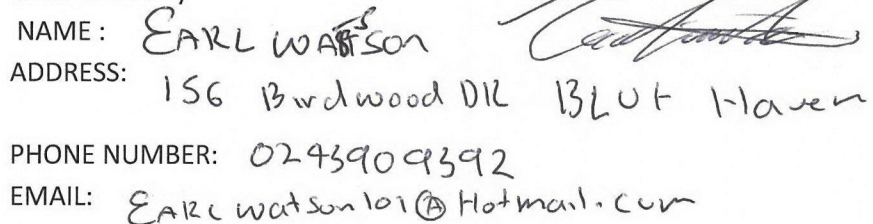 NAME: EARL WATSON
ADDRESS:
156 Birdwood DR BLUE Haven
PHONE NUMBER: 0243909392
EMAIL: EARL watson101@Hotmail.com